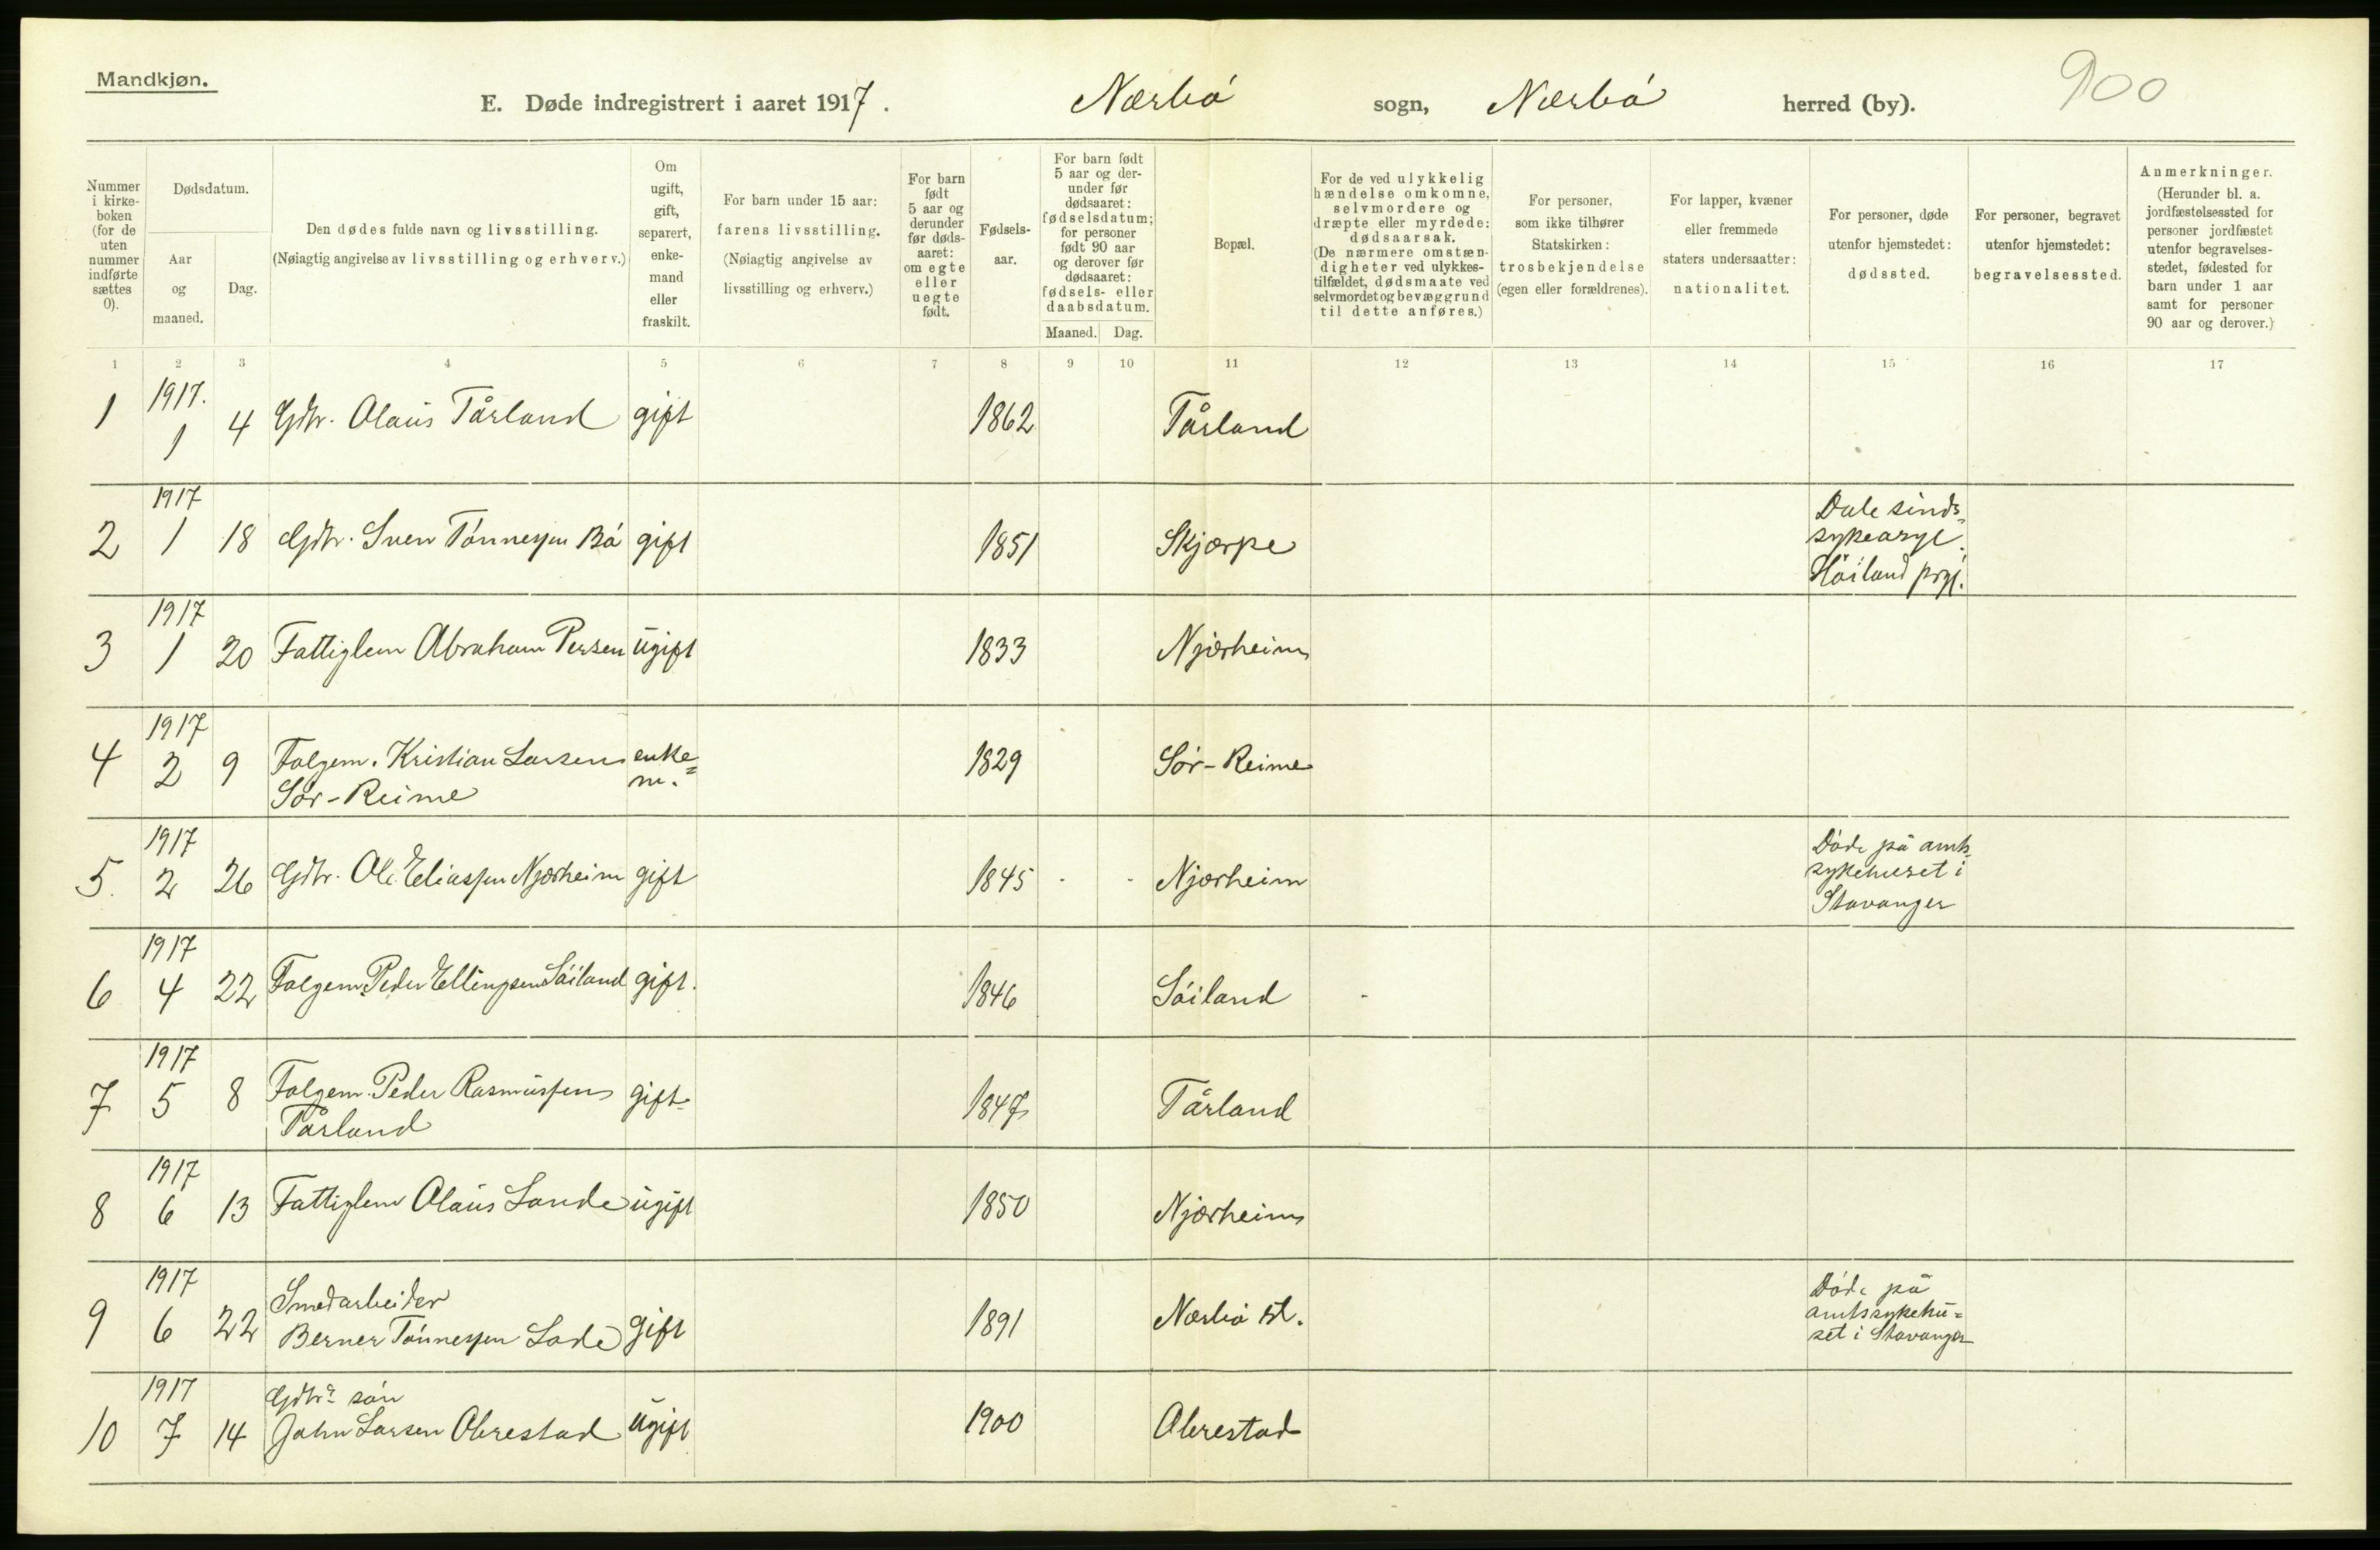 Mandkjøn.
E. Døde indregistrert i aaret 1917. Nærbö sogn, Nærbö herred (by). 900
Nummer i kirke- boken (for de uten nummer indførte sættes 0).
Dødsdatum.
Aar og maaned.
Dag.
Den dødes fulde navn og livsstilling.
(Nøiagtig angivelse av livsstilling og erhverv.)
Om ugift, gift, separert, enke- mand eller fraskilt.
For barn under 15 aar: farens livsstilling. (Nøiagtig angivelse av livsstilling og erhverv.)
For barn født 5 aar og derunder før døds- aaret: om egte eller uegte født.
Fødsels- aar.
For barn født 5 aar og der- under før dødsaaret: fødselsdatum; for personer født 90 aar og derover før dødsaaret: fødsels- eller daabsdatum.
Maaned. Dag.
Bopæl.
For de ved ulykkelig hændelse omkomne, selvmordere og dræpte eller myrdede: dødsaarsak. (De nærmere omstæn- digheter ved ulykkes- tilfældet, dødsmaate ved selvmordet og bevæggrund til dette anføres.)
For personer, som ikke tilhører Statskirken: trosbekjendelse (egen eller forældrenes).
For lapper, kvæner eller fremmede staters undersaatter: nationalitet.
For personer, døde utenfor hjemstedet: dødssted.
For personer, begravet utenfor hjemstedet: begravelsessted.
Anmerkninger. (Herunder bl. a. jordfæstelsessted for personer jordfæstet utenfor begravelses- stedet, fødested for barn under 1 aar samt for personer 90 aar og derover.)
1 2 3 4 5 6 7 8 9 10 11 12 13 14 15 16 17
1 1917. 1 4 Gdbr. Olaus Tårland gift 1862 Tårland
2 1917 1 18 Gdbr. Sven Tönnessen Bö gift 1851 Skjærpe Dale sinds- sykeasyl. Höiland prgj.
3 1917 1 20 Fattiglem Abraham Persen ugift 1833 Njærheim
4 1917 2 9 Folgem. Kristian Larsen Sör-Reime enke= m. 1829 Sör-Reime
5. 1917 2 26 Gdbr. Ole Eliassen Njærheim gift 1845 Njærheim Döde på amts- sykehuset i Stavanger
6 1917 4 22 Folgem. Peder Ellingsen Söiland gift. 1846 Söiland
7 1917 5 8 Folgem. Peder Rasmussen Tårland gift 1847 Tårland
8 1917 6 13 Fattiglem Olaus Lande ugift 1850 Njærheim
9 1917 6 22 Smedarbeider Berner Tönnessen Lode gift 1891 Nærbö st. Döde på amtssykehu= set i Stavanger
10 1917 7 14 Gdbrs sön John Larsen Obrestad ugift 1900 Obrestad